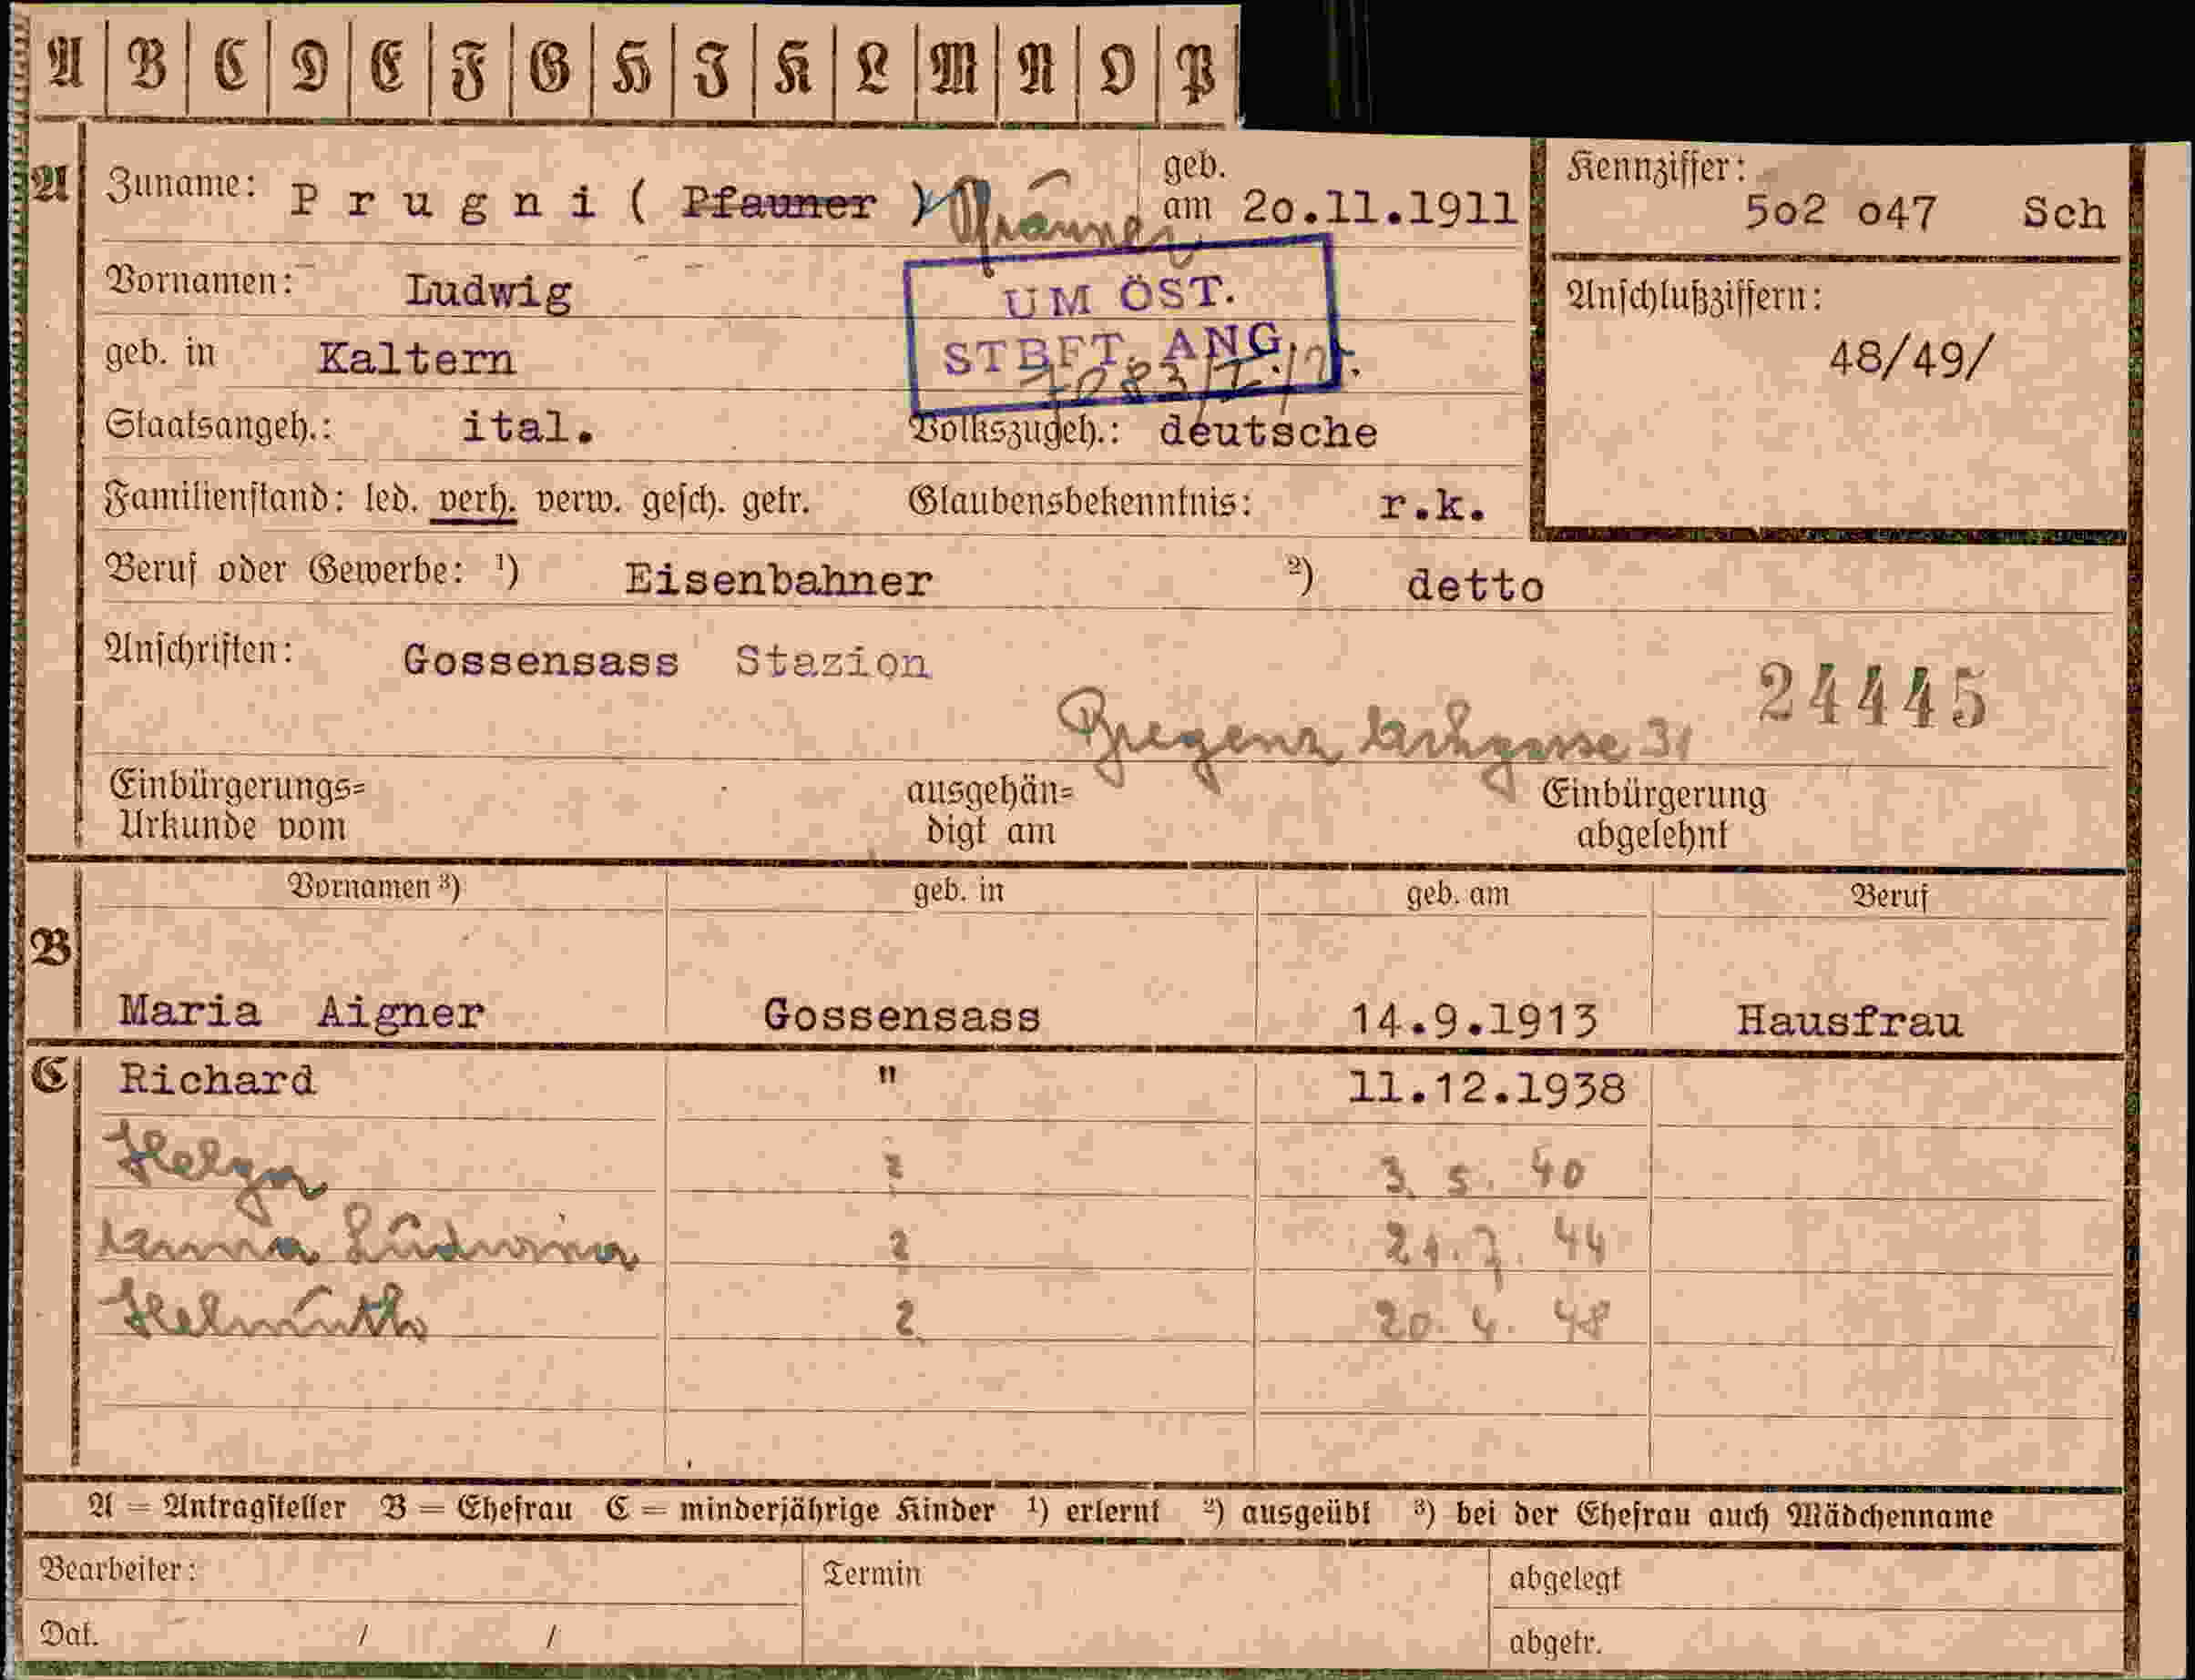 A B C D E F G H I K L M N O P
A Zuname: Prugni ( Pfauner ) geb. am 20.11.1911
Kennziffer: 502 047 Sch
Vornamen: Ludwig
UM ÖST.
STBFT. ANG.
Anschlußziffern:
48/49/
geb. in Kaltern
Staatsangeh.: ital. Volkszugeh.: deutsche
Familienstand: led. verh. verw. gesch. getr. Glaubensbekenntnis: r.k.
Beruf oder Gewerbe: ¹) Eisenbahner ²) detto
Anschriften: Gossensass Stazion
24445
Bregenz 31
Einbürgerungs= ausgehän= Einbürgerung
Urkunde vom digt am abgelehnt
Vornamen ³) geb. in geb. am Beruf
B
Maria Aigner Gossensass 14.9.1913 Hausfrau
C Richard " 11.12.1938
Helga 3. 5. 40
Anna Ludwina 21. 7. 44
Helmuth 20. 4. 48
A = Antragsteller B = Ehefrau C = minderjährige Kinder ¹) erlernt ²) ausgeübt ³) bei der Ehefrau auch Mädchenname
Bearbeiter: Termin abgelegt
Dat. / / abgetr.